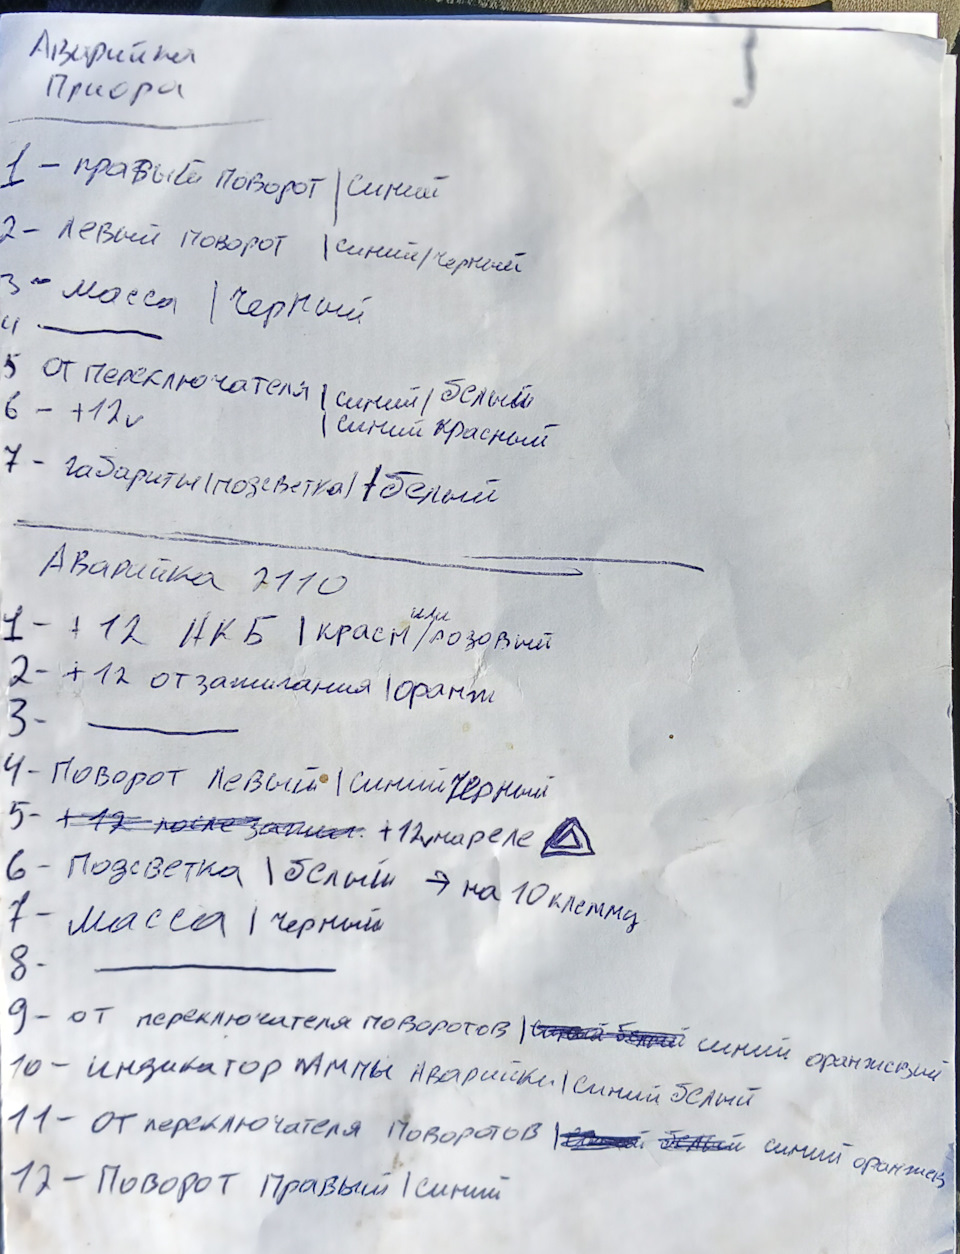 Аварийка
Приора
1 - правый поворот | синий
2 - левый поворот | синий/черный
3 - масса | черный
4 ———
5 от переключателя | синий/белый
6 - +12v | синий красный
7 - габариты (подсветка) | белый
Аварийка 2110
1 - +12 АКБ | красн или/розовый
2 - +12 от зажигания | оранж
3 - ———
4 - Поворот левый | синий черный
5 - +12 после зажиг. +12v на реле
6 - Подсветка | белый → на 10 клемму
7 - масса | черный
8 - ———
9 - от переключателя поворотов | синий оранжевый
10 - индикатор лампы аварийки | синий белый
11 - от переключателя поворотов | белый синий оранжев
12 - Поворот правый | синий